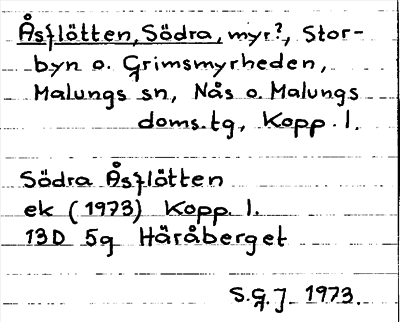 Åsflötten, Södra, myr?, Stor-
byn o. Grimsmyrheden,
Malungs sn, Nås o. Malungs
doms.tg, Kopp. l.
Södra Åsflötten
ek (1973) Kopp. l.
13D 5g Häråberget
S.G.J 1973.